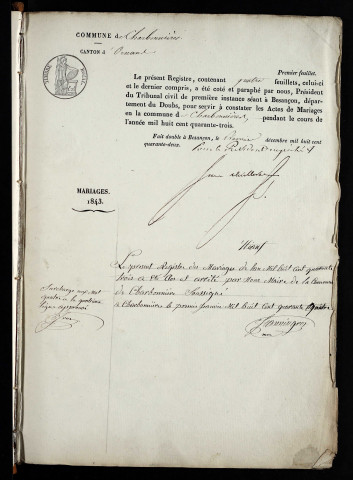 COMMUNE de Charbonnières
CANTON d'Ornans
Premier feuillet.
Le présent Registre, contenant quatre feuillets, celui-ci
et le dernier compris, a été coté et paraphé par nous, Président
du Tribunal civil de première instance séant à Besançon, dépar-
tement du Doubs, pour servir à constater les Actes de Mariages
en la commune de Charbonnières pendant le cours de
l'année mil huit cent quarante-trois.
Fait double à Besançon, le décembre mil huit cent
quarante-deux.
Pour le Président empêché
MARIAGES.
1843.
Le présent Registre des Mariages de l'an Mil huit cent quarante
trois a été clos et arrêté par Nous Maire de la Commune
de Charbonnières Soussigné
à Charbonnières le premier janvier Mil huit cent quarante quatre
Surcharge au mot
quatre à la quatrième
ligne approuvé